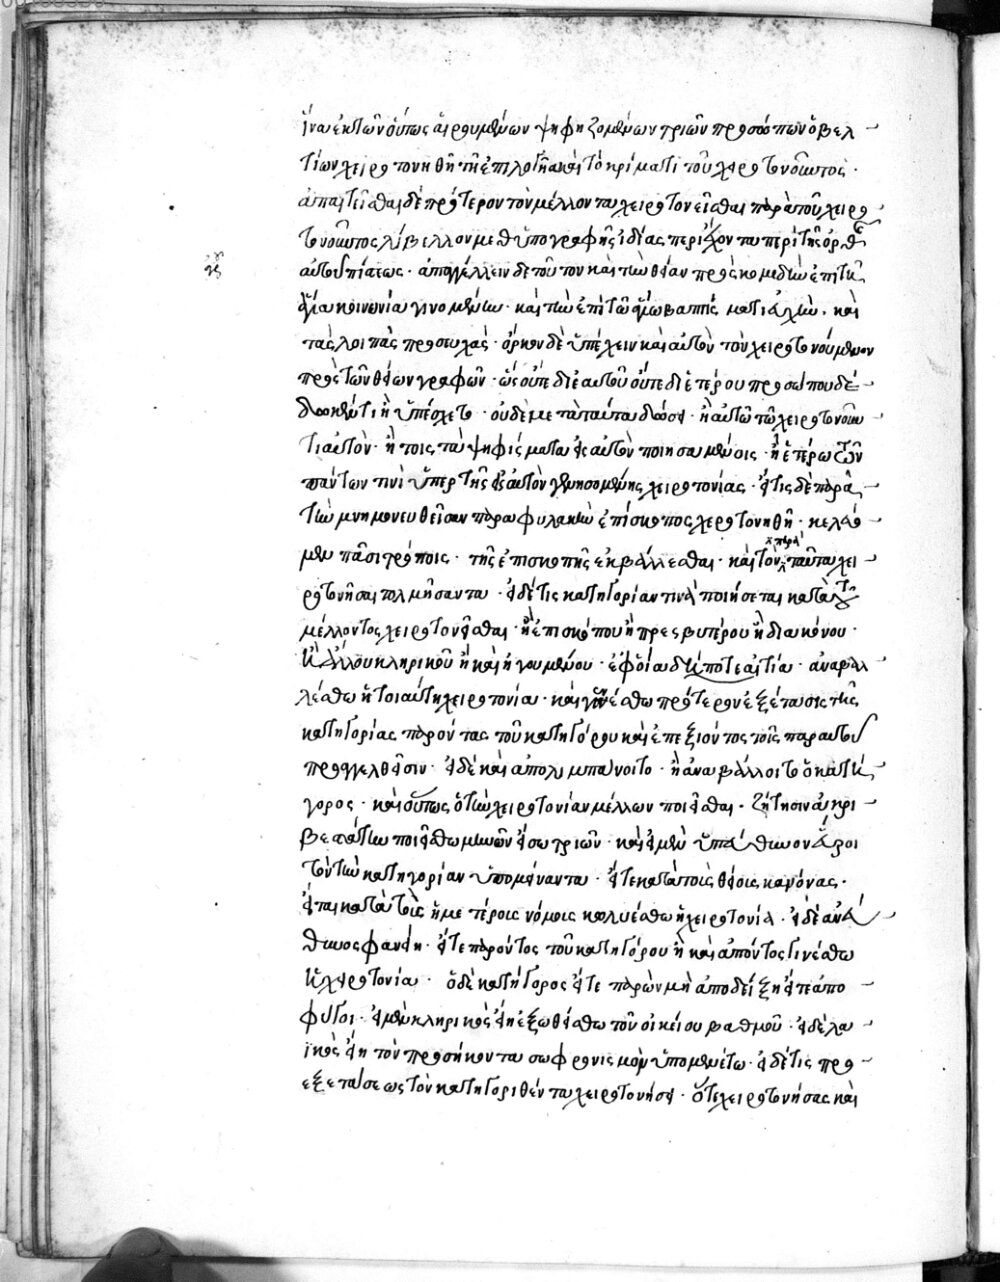 ἵνα ἐκ τῶν οὕτως αἱρουμένων ψηφιζομένων τριῶν προσώπων ὁ βελ
τίων χειροτονηθῆ τῆ ἐπιλογῆ καὶ τῶ κρίματι τοῦ χειροτονοῦντος·
ἀπαιτεῖσθαι δὲ πρότερον τὸν μέλλοντα χειροτονεῖσθαι παρὰ τοῦ χειρο
τονοῦντος λίβελλον μεθ ὑπογραφῆς ἰδίας περιέχοντα περὶ τῆς ὀρθῆς
αὐτοῦ πίστεως· ἀπαγγέλλειν δὲ τοῦτον καὶ τὴν θείαν προσκομιδὴν ἐπὶ τῆ
ἁγία κοινωνία γινομένην· καὶ τὴν ἐπὶ τῶ ἁγίω βαπτίσματι εὐχὴν· καὶ
τὰς λοιπὰς προσευχάς· ὅρκον δὲ ὑπέχειν καὶ αὐτὸν τὸν χειροτονούμενον
πρὸς τῶν θείων γραφῶν· ὡς οὔτε δι ἑαυτοῦ οὔτε δι ἑτέρου προσώπου δέ
δωκέν τι ἢ ὑπέσχετο· οὐδὲ μετὰ ταῦτα δώσει· ἢ αὐτῶ τῶ χειροτονοῦν
τι αὐτὸν· ἢ τοῖς τὰ ψηφίσματα εἰς αὐτὸν ποιησαμένοις· ἢ ἑτέρω τῶν
πάντων τινὶ ὑπὲρ τῆς εἰς αὐτὸν γενησομένης χειροτονίας· εἴ τις δὲ παρὰ
τὴν μνημονευθεῖσαν παραφυλακὴν ἐπίσκοπος χειροτονηθῆ· κελεύο
μεν πᾶσι τρόποις· τῆς ἐπισκοπῆς ἐκβάλλεσθαι· καὶ τὸν παρὰ ταῦτα χει
ροτονῆσαι τολμήσαντα· εἰ δέ τις κατηγορίαν τινὰ ποιήσεται κατὰ τοῦ
μέλλοντος χειροτονεῖσθαι· ἢ ἐπισκόπου ἢ πρεσβυτέρου ἢ διακόνου·
ἢ ἄλλου κληρικοῦ ἢ καὶ ἡγουμένου· ἐφ οἵα δήποτε αἰτία· ἀναβαλ
λέσθω ἡ τοιαύτη χειροτονία· καὶ γινέσθω πρότερον ἐξέτασις τῆς
κατηγορίας παρόντος τοῦ κατηγόρου καὶ ἐπεξιόντος τοῖς παρ αὐτοῦ
προαγγελθεῖσιν· εἰ δὲ καὶ ἀπολιμπάνοιτο· ἢ ἀναβάλλοιτο ὁ κατή
γορος· καὶ οὕτως ὁ τὴν χειροτονίαν μέλλων ποιεῖσθαι· ζήτησιν ἀκρι
βεστάτην ποιείσθω μηνῶν εἴσω τριῶν· καὶ εἰ μὲν ὑπεύθυνον εὕροι
τὸν τὴν κατηγορίαν ὑπομείναντα· εἴτε κατὰ τοὺς θείους κανόνας·
εἴτε κατὰ τοὺς ἡμετέρους νόμους κωλυέσθω ἡ χειροτονία· εἰ δὲ ἀνεύ
θυνος φανείη· εἴτε παρόντος τοῦ κατηγόρου ἢ καὶ ἀπόντος γινέσθω
ἡ χειροτονία· ὁ δὲ κατήγορος εἴτε παρὼν μὴ ἀποδείξη εἴτε ἀπο
φύγοι· εἰ μὲν κληρικὸς εἴη ἐξωθείσθω τοῦ οἰκείου βαθμοῦ· εἰ δὲ λα
ϊκὸς εἴη τὸν προσήκοντα σωφρονισμὸν ὑπομενέτω· εἰ δέ τις πρὸ
ἐξετάσεως τὸν κατηγορηθέντα χειροτονήσει· ὅ τε χειροτονήσας καὶ